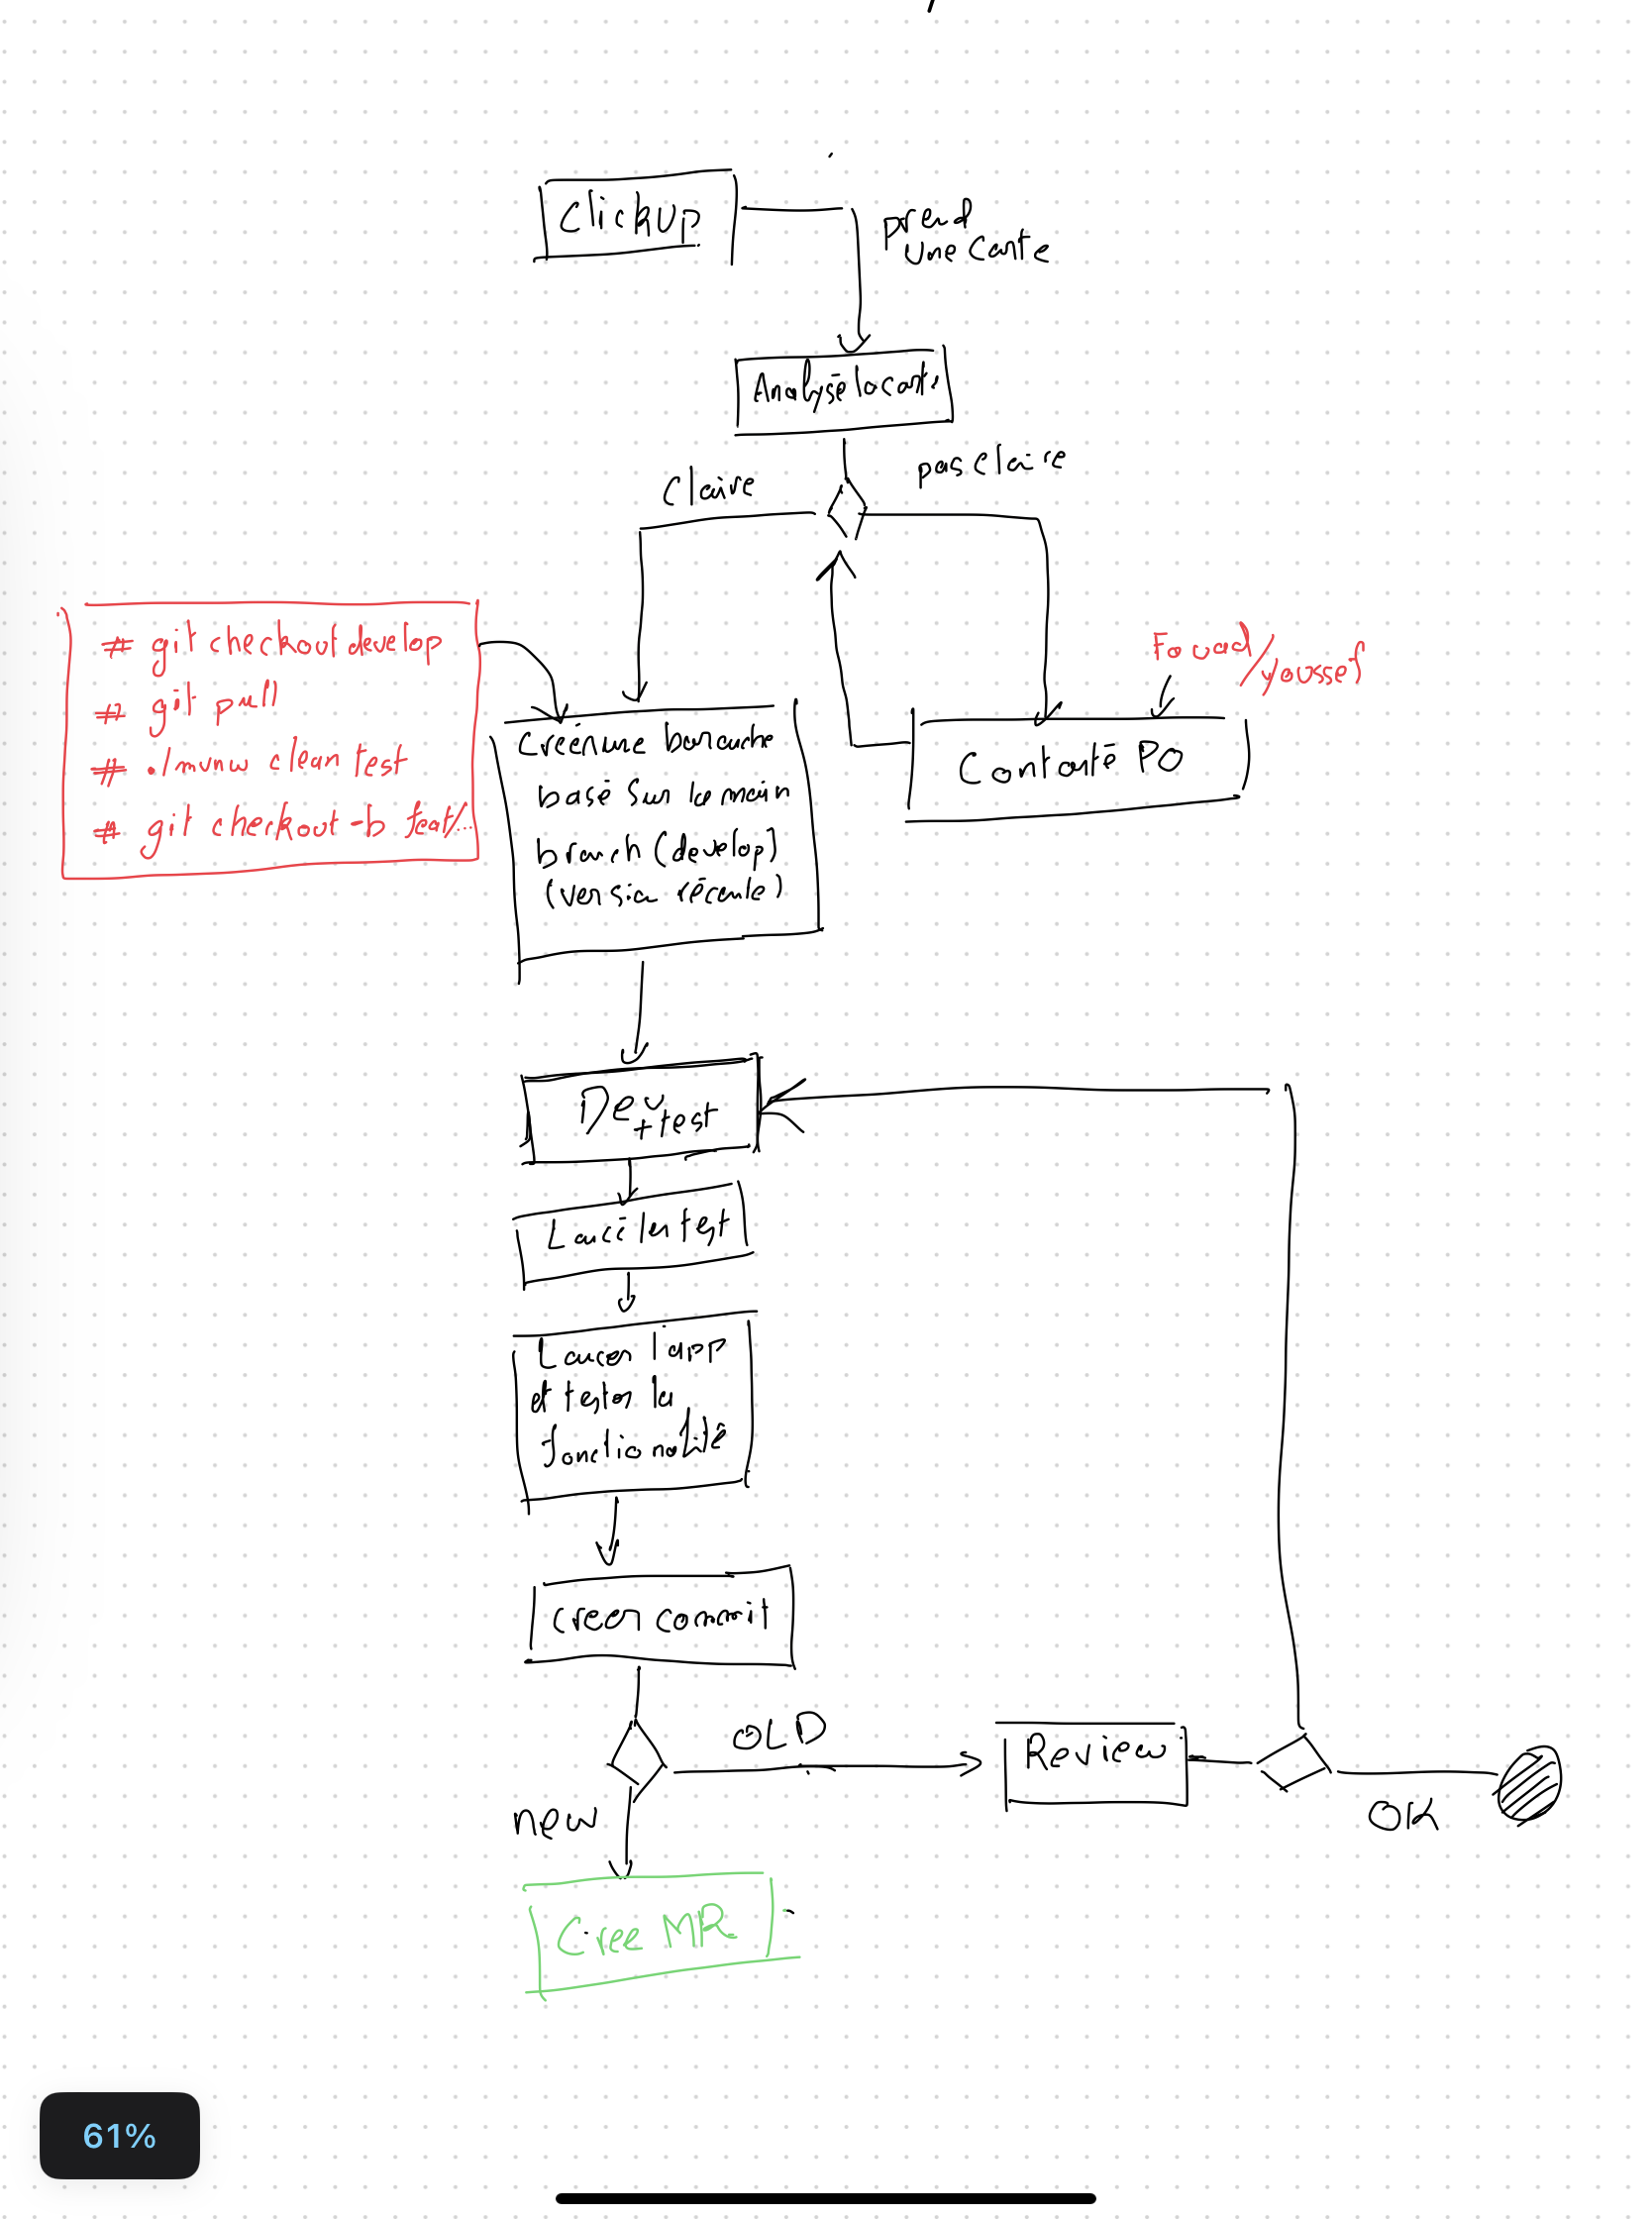 Clickup
prend
une carte
Analysé la carte
Claire
pas claire
# git checkout develop
# git pull
# ./mvnw clean test
# git checkout -b feat/...
Fouad/youssef
Créer une branche
basé sur la main
branch (develop)
(version récente)
Contacté PO
Dev
+test
Lancé les test
Lancer l'app
et tester la
fonctionalité
creer commit
OLD
Review
new
OK
Cree MR
61%